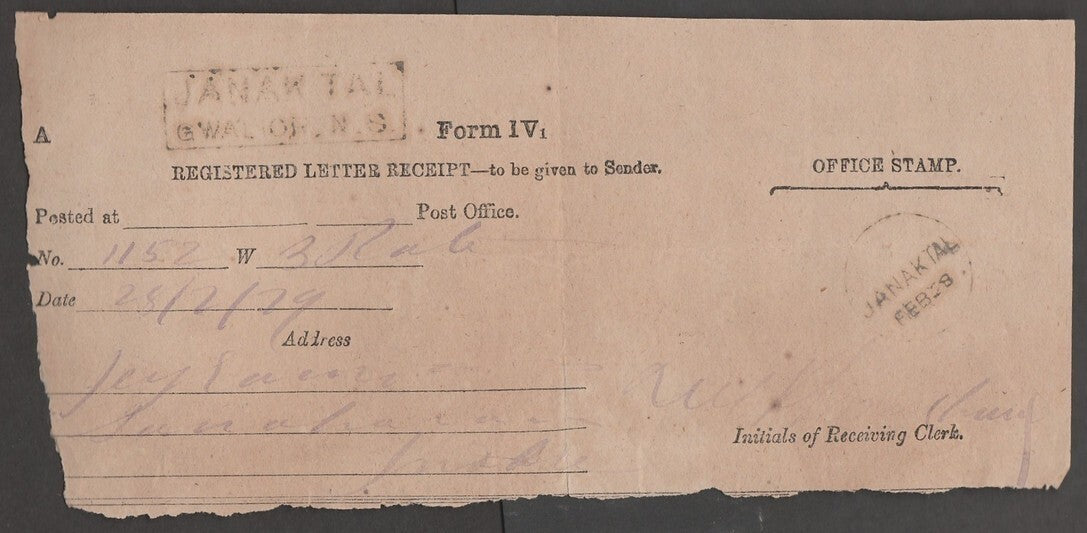 JANAK TAL
GWALIOR. N. S.
A
Form IV1
REGISTERED LETTER RECEIPT—to be given to Sender.
OFFICE STAMP.
Posted at Post Office.
No. 1152 W
Date 28/2/29
JANAKTAL
FEB 28
Address
Initials of Receiving Clerk.